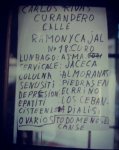 CARLOS RIVAS
CURANDERO
CALLE
RAMON Y CA,JAL
Nº 18 CURO
LUNBAGO: ASMA
CERVICALE: JACECA
COLUNA ALMORANAS
SENUSITI PIEDRAS EN
DEPRESION EL RINO
EPATITI LOS CEBAN
CISTEENI DIALIS
OVARIO STO DOME NO
CAUSE